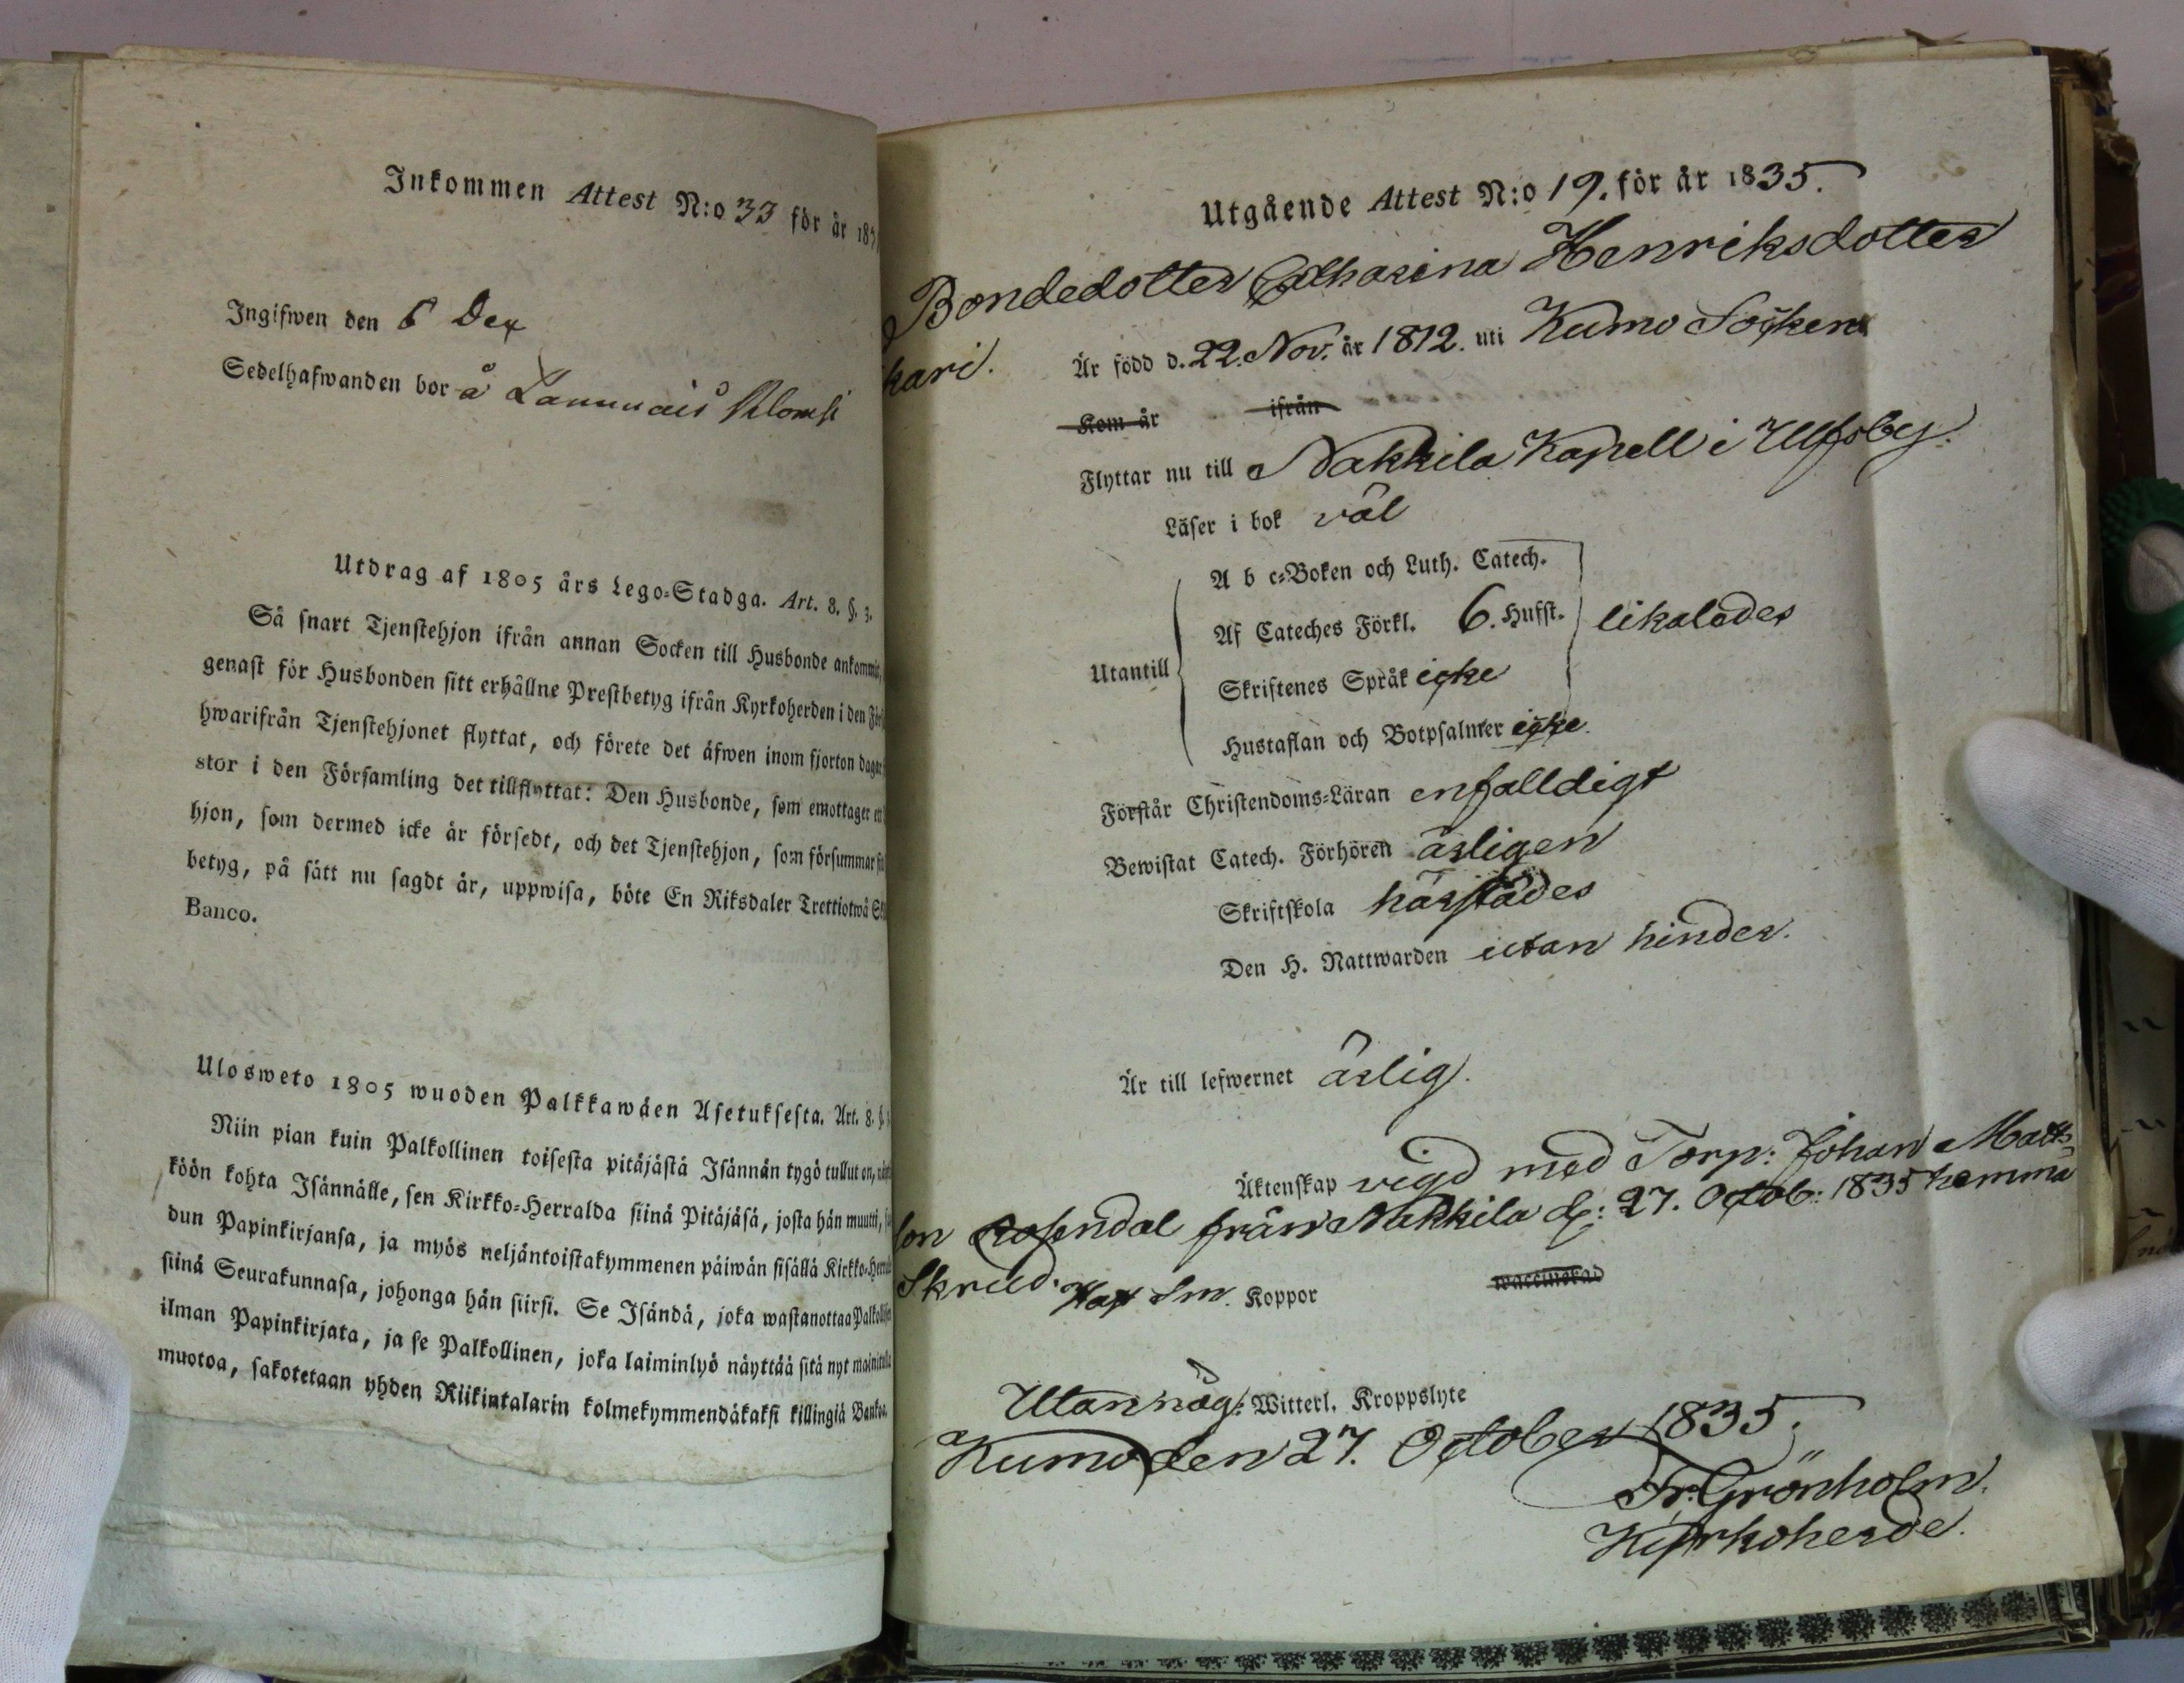 Inkommen Attest N:o 33 för år 183
Ingifwen den 6 Dec
Sedelhafwanden bor å Lammais Klomsi
Utdrag af 1805 års Lego-Stadga. Art. 8. §. 3.
Så snart Tjenstehjon ifrån annan Socken till Husbonde ankommit,
genast för Husbonden sitt erhållne Prestbetyg ifrån Kyrkoherden i den För
hwarifrån Tjenstehjonet flyttat, och förete det äfwen inom fjorton dagar
stor i den Församling det tillflyttat: Den Husbonde, som emottager
hjon, som dermed icke är försedt, och det Tjenstehjon, som försummar
betyg, på sätt nu sagdt är, uppwisa, böte En Riksdaler Trettiotwå
Banco.
Ulosweto 1805 wuoden Palkkawäen Asetuksesta. Art. 8. §.
Niin pian kuin Palkollinen toisesta pitäjästä Isännän tygö tullut on,
köön kohta Isännälle, sen Kirkko-Herralda siinä Pitäjäsä, josta hän muutti,
dun Papinkirjansa, ja myös neljäntoistakymmenen päiwän sisällä Kirkko-Herr
siinä Seurakunnasa, johonga hän siirsi. Se Isändä, joka wastanottaa Palkoll
ilman Papinkirjata, ja se Palkollinen, joka laiminlyö näyttää sitä nyt mainitulla
muotoa, sakotetaan yhden Riikintalarin kolmekymmendäkaksi killingiä Bankos.
Utgående Attest N:o 19. för år 1835.
Bondedotter Catharina Henriksdotter
kari. Är född d. 22. Nov. år 1812. uti Kumo Socken
Kom år ifrån
Flyttar nu till Nakkila Kapell i Ulfsby.
Läser i bok väl
A b c-Boken och Luth. Catech.
Af Cateches Förkl. 6. Hufst. likaledes
Utantill
Skriftenes Språk icke
Hustaflan och Botpsalmer icke.
Förstår Christendoms-Läran enfalldigt
Bewistat Catech. Förhören årligen
Skriftskola härstädes
Den H. Nattwarden utan hinder.
Är till lefwernet ärlig.
Äktenskap vigd med Torp: Johan Matts
son Rosendal från Nakkila d: 27. Octob: 1835 hemma
Skrud. Haft Sm. Koppor waccinerad
Utan någ: Witterl. Kroppslyte
Kumo den 27. October 1835.
Fr. Grönholm.
Kyrkoherde.